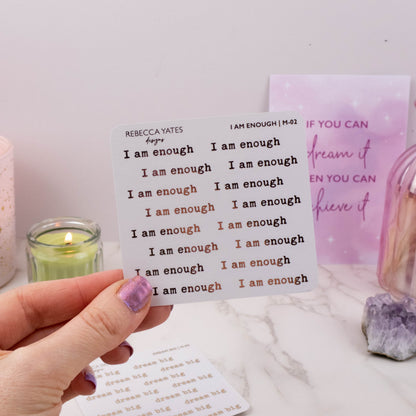 REBECCA YATES
designs
I AM ENOUGH | M-02
I am enough I am enough
I am enough I am enough
I am enough I am enough
I am enough I am enough
I am enough I am enough
I am enough I am enough
I am enough I am enough
I am enough I am enough
IF YOU CAN
dream it
EN YOU CAN
chieve it
dream big
dream big dream big
dream big dream big
dream big